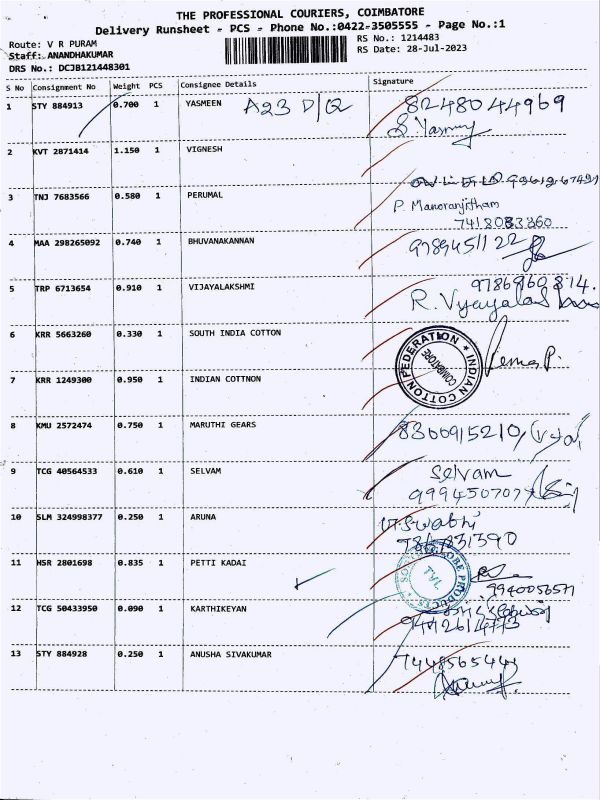 THE PROFESSIONAL COURIERS, COIMBATORE
Delivery Runsheet - PCS - Phone No.:0422-3505555 - Page No.:1
Route: V R PURAM
RS No.: 1214483
Staff: ANANDHAKUMAR
RS Date: 28-Jul-2023
DRS No.: DCJB121448301
S No Consignment No Weight PCS Consignee Details Signature
1 STY 884913 0.700 1 YASMEEN A23 D/2 8248044969
2 KVT 2871414 1.150 1 VIGNESH
3 TNJ 7683566 0.580 1 PERUMAL P Manoranjitham
7418083360
4 MAA 298265092 0.740 1 BHUVANAKANNAN 9789451122
5 TRP 6713654 0.910 1 VIJAYALAKSHMI 9786960814.
R. Vijayalakshmi
6 KRR 5663260 0.330 1 SOUTH INDIA COTTON
INDIAN COTTON FEDERATION
COIMBATORE
7 KRR 1249300 0.950 1 INDIAN COTTNON
8 KMU 2572474 0.750 1 MARUTHI GEARS 8300915210
9 TCG 40564533 0.610 1 SELVAM Selvam
9994507077
10 SLM 324998377 0.250 1 ARUNA
11 HSR 2801698 0.835 1 PETTI KADAI 9940056571
12 TCG 50433950 0.090 1 KARTHIKEYAN
13 STY 884928 0.250 1 ANUSHA SIVAKUMAR